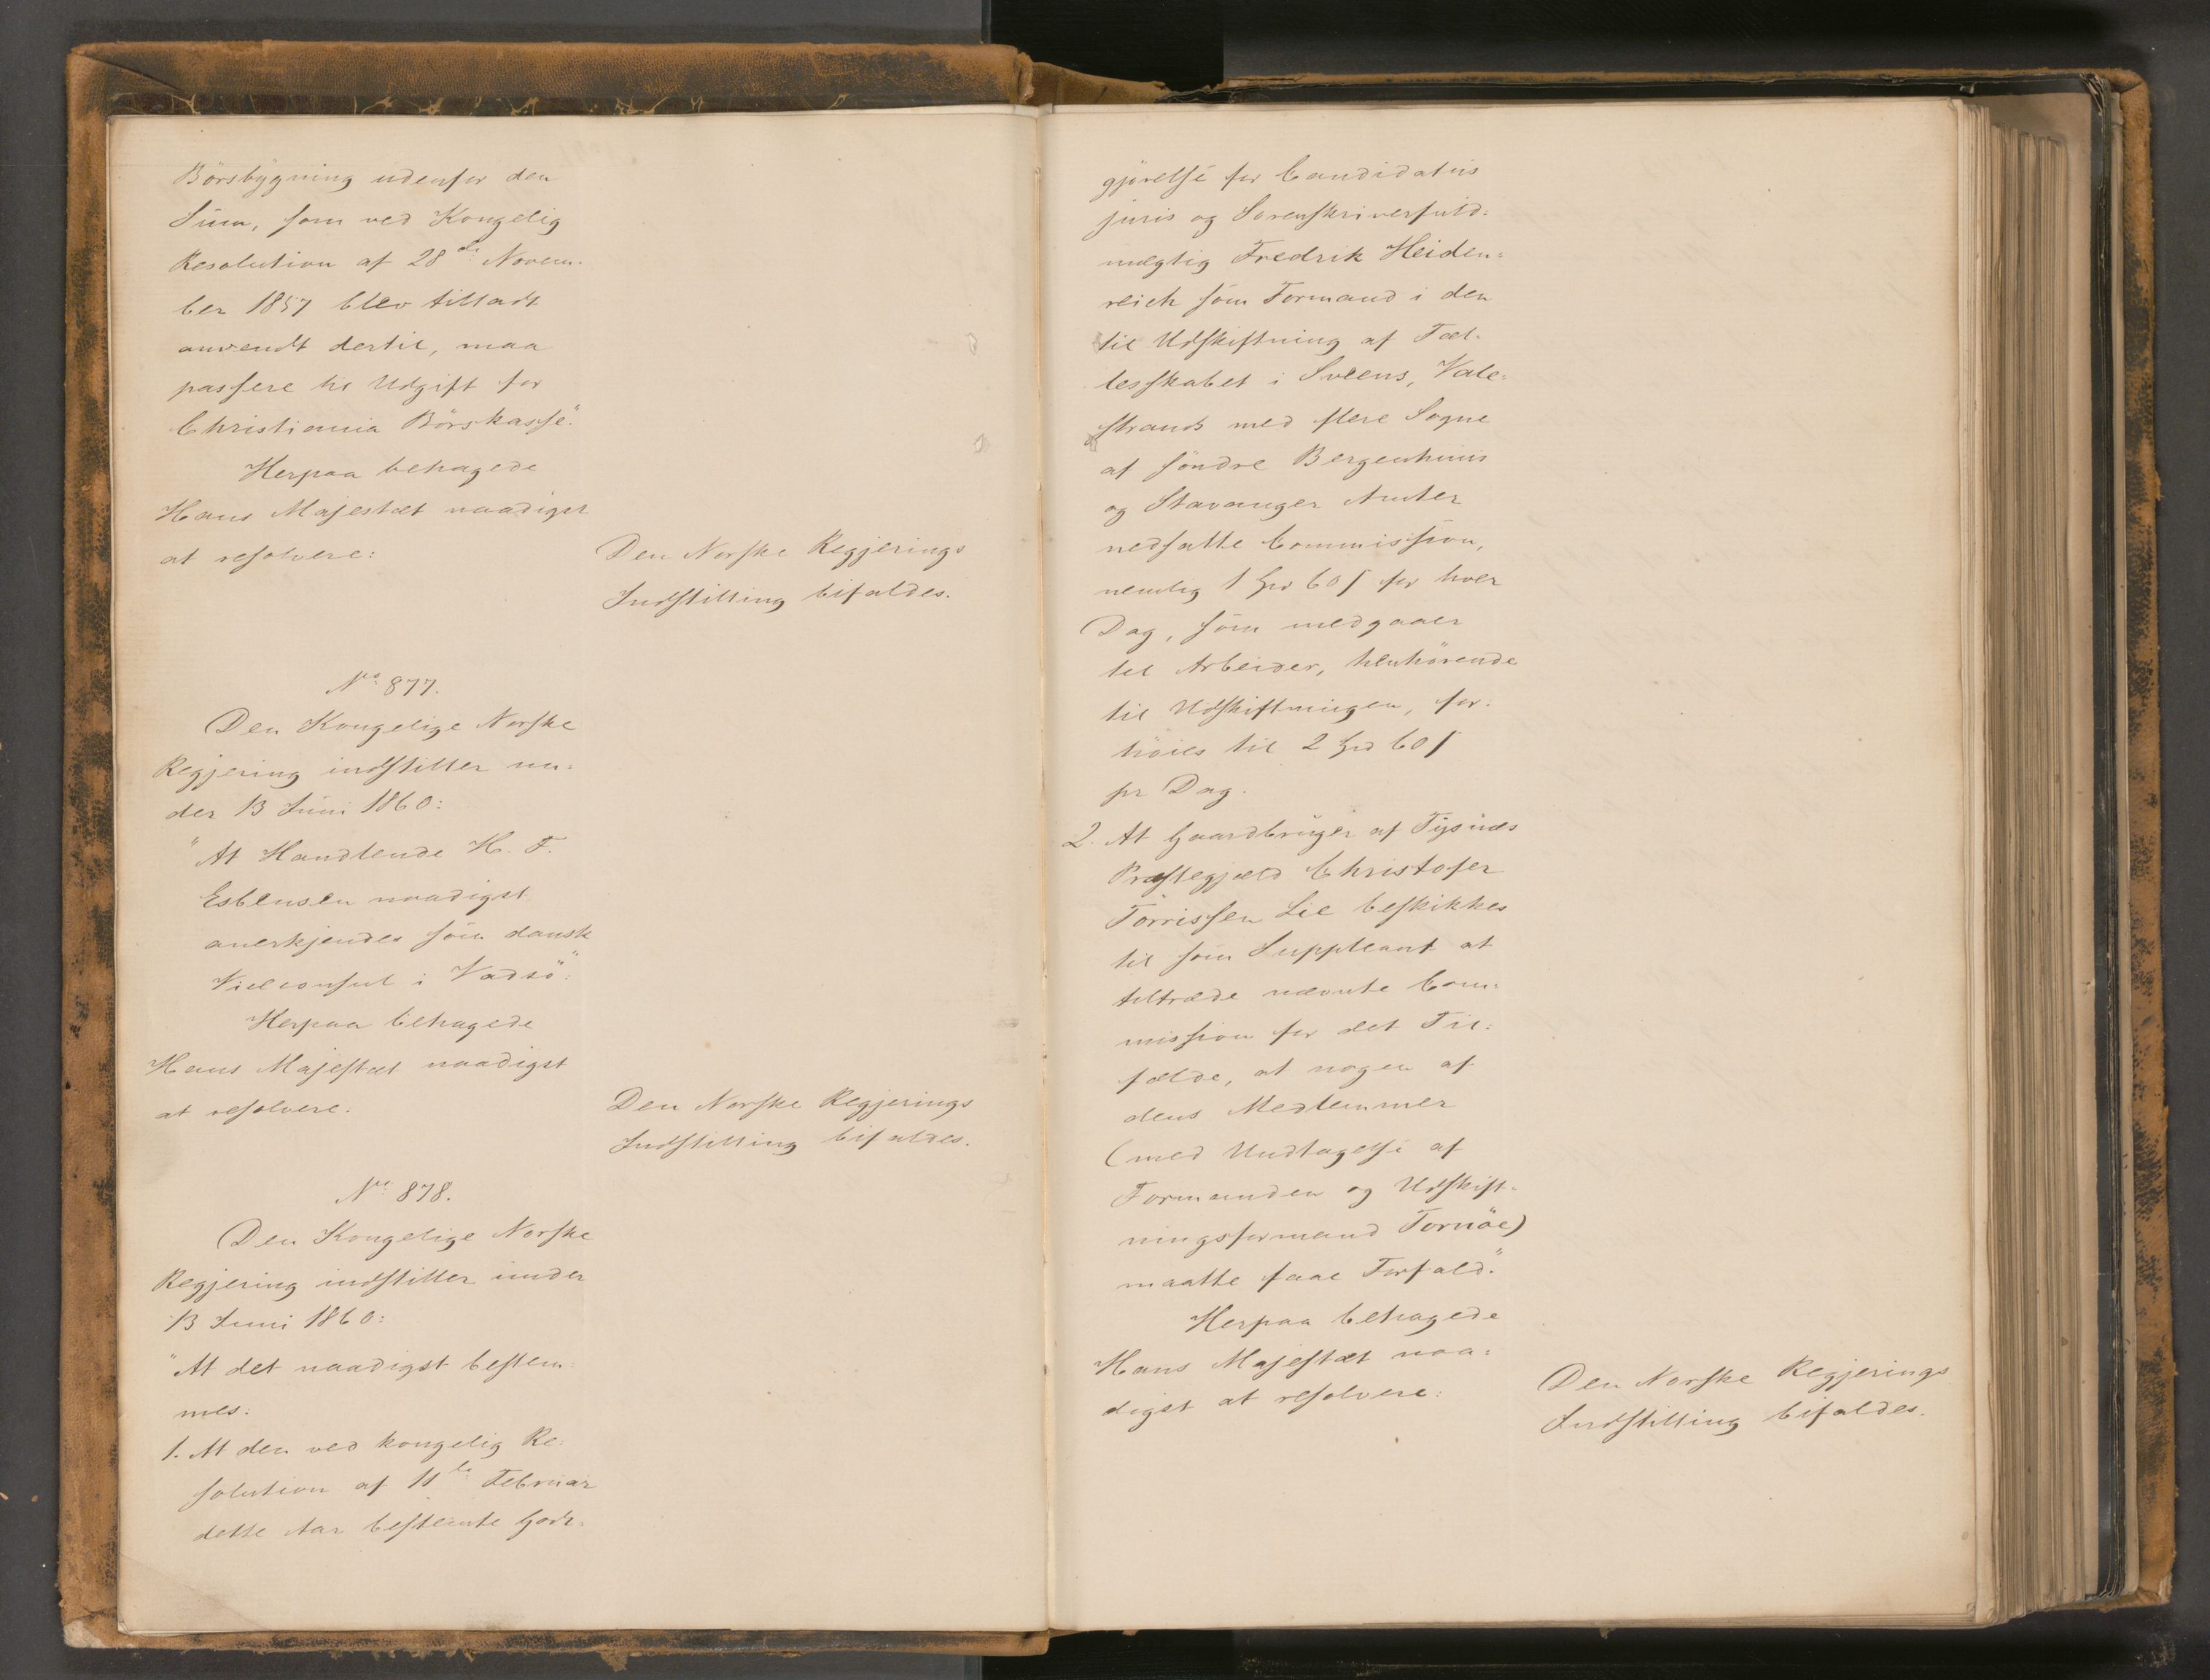 Börsbygning udenfor den
Sum, som ved Kongelig
Resolution af 28de Novem-
ber 1857 blev tilladt
anvendt dertil, maa
passere til Udgift for
Christiania Börskasse."
Herpaa behagede
Hans Majestæt naadigst
at resolvere:
Den Norske Regjerings
Indstilling bifaldes.
No 877.
Den Kongelige Norske
Regjering indstiller un-
der 13 Juni 1860:
"At Handlende H. F.
Esbensen naadigst
anerkjendes som dansk
Viceconsul i Vadsö."
Herpaa behagede
Hans Majestæt naadigst
at resolvere:
Den Norske Regjerings
Indstilling bifaldes.
No 878.
Den Kongelige Norske
Regjering indstiller under
13 Juni 1860:
"At det naadigst bestem-
mes:
1. At den ved kongelig Re-
solution af 11te Februar
dette Aar bestemte Godt-
gjörelse for Candidatus
juris og Sorenskriverfuld-
mægtig Fredrik Heiden-
reich som Formand i den
til Udskiftning af Fæl-
lesskabet i Sveens, Vale-
strands med flere Sogne
af söndre Bergenhuus
og Stavanger Amter
nedsatte Commission,
nemlig 1 Spd 60 s for hver
Dag, som medgaaer
til Arbeider, henhörende
til Udskiftningen, for-
höies til 2 Spd 60 s
pr Dag.
2. At Gaardbruger af Tysnæs
Præstegjæld Christofer
Törrissen Lie beskikkes
til som Suppleant at
tiltræde nævnte Com-
mission for det Til-
fælde, at nogen af
dens Medlemmer
(med Undtagelse af
Formanden og Udskift-
ningsformand Tornöe)
maatte faae Forfald."
Herpaa behagede
Hans Majestæt naa-
digst at resolvere:
Den Norske Regjerings
Indstilling bifaldes.